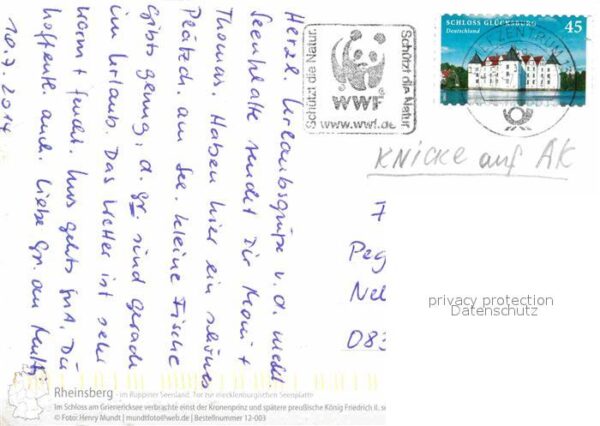 Herzl. Urlaubsgrüße v. d. meckl.
Seenplatte sendet Dir Moni +
Thomas. Haben hier ein schönes
Plätzch. am See. kleine Fische
gibts genug, d. gr. sind gerade
im Urlaub. Das Wetter ist sehr
warm + feucht. Uns gehts gut. Du
hoffentl. auch. Liebe Gr. an
10.7.2014
Schützt die Natur.
WWF
www.wwf.de
Schützt die Natur.
SCHLOSS GLÜCKSBURG
Deutschland
45
KNICKE auf AK
7
Peg
Nel
083
privacy protection
Datenschutz
Rheinsberg - im Ruppiner Seenland. Tor zur mecklenburgischen Seenplatte
Im Schloss am Grienericksee verbrachte einst der Kronenprinz und spätere preußische König Friedrich II. se
© Foto: Henry Mundt | mundtfoto@web.de | Bestellnummer 12-003